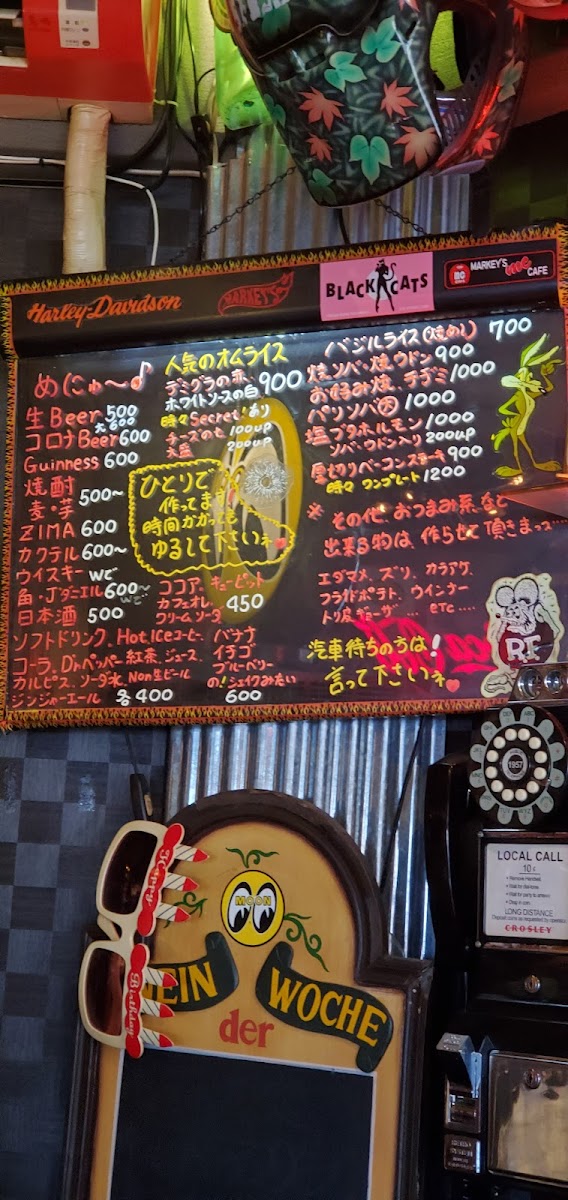 Harley-Davidson
MARKEY'S
BLACK CATS
MARKEY'S
CAFE
めにゅ〜♪
生Beer 500
大600
コロナBeer 600
Guinness 600
焼酎
麦・芋 500~
ZIMA 600
カクテル 600~
ウイスキー Wど
角・J.ダニエル 600~
日本酒 500
ソフトドリンク、Hot,ICEコーヒー、
コーラ、Dr.ペッパー 紅茶、ジュース、
カルピス、ソーダ水、Non生ビール
ジンジャーエール 各400
人気のオムライス
デミグラの赤、
ホワイトソースの白、 900
時々Secret!あり
チーズのせ 100up
大盛 200up
ひとりで
作ってます
時間かかっても
ゆるして下さいネ
ココア、キューピット
カフェオレ、
クリームソーダ 450
バナナ
イチゴ
ブルーベリー
の!シェイクみたい
600
バジルライス(焼めし) 700
焼ソバ・焼ウドン 900
お好み焼、チヂミ 1000
パリソバ 大 1000
塩ブタホルモン 1000
ソバ・ウドン入り 200up
厚切りベーコンステーキ 900
時々 ワンプレート 1200
※ その他、おつまみ系など
出来る物は、作らせて頂きまっ…
エダマメ、ズリ、カラアゲ、
フライドポテト、ウインナー
トリ皮ギョーザ… etc ....
汽車待ちの方は!
言って下さいネ
R.F
Happy
Birthday
MOON
EIN
der
WOCHE
1957
LOCAL CALL
10¢
LONG DISTANCE
CROSLEY